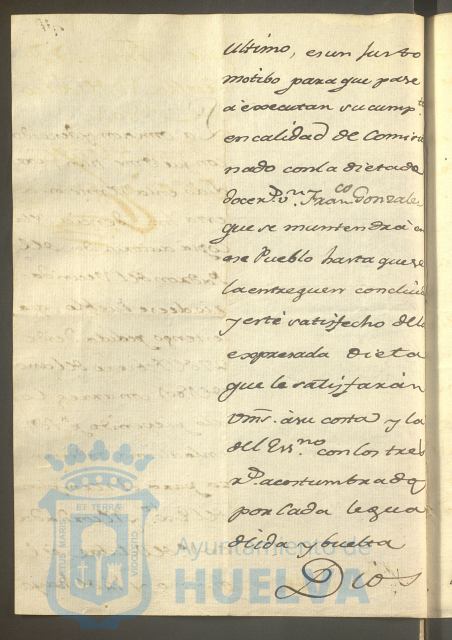 ultimo, es un justo
motibo para que pase
à executar su cumpto
en calidad de Comisio
nado con la dieta de
doce rs. vn. Franco Gonzalez
que se mantendrà en
ese Pueblo hasta que se
la entreguen concluid
y esté satisfecho de la
expresada dieta
que le satisfarán
Vms. à su costa y la
del Essno con los tres
rs. acostumbrados
por cada legua
de ida y buelta
Dios
PORTUS MARIS
ET TERRÆ
CUSTODIA
Ayuntamiento de
HUELVA